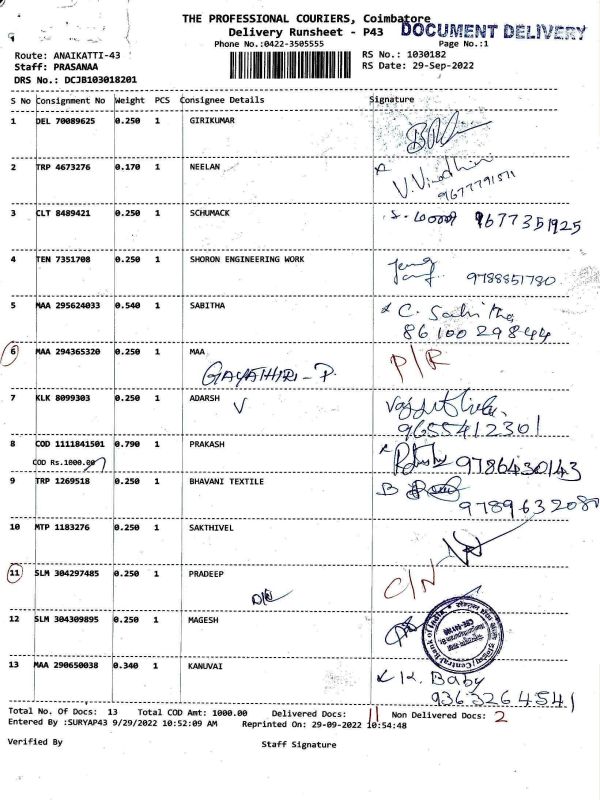 THE PROFESSIONAL COURIERS, Coimbatore
DOCUMENT DELIVERY
Delivery Runsheet - P43
Phone No.:0422-3505555 Page No.:1
Route: ANAIKATTI-43 RS No.: 1030182
Staff: PRASANAA RS Date: 29-Sep-2022
DRS No.: DCJB103018201
S No Consignment No Weight PCS Consignee Details Signature
1 DEL 70089625 0.250 1 GIRIKUMAR
2 TRP 4673276 0.170 1 NEELAN
3 CLT 8489421 0.250 1 SCHUMACK 9677351925
4 TEN 7351708 0.250 1 SHORON ENGINEERING WORK
9788851780
5 MAA 295624033 0.540 1 SABITHA C. Sabitha
8610029844
6 MAA 294365320 0.250 1 MAA P/R
GAYATHIRI - P.
7 KLK 8099303 0.250 1 ADARSH
9655412301
8 COD 1111841501 0.790 1 PRAKASH
COD Rs.1000.00 9786430143
9 TRP 1269518 0.250 1 BHAVANI TEXTILE
9789632080
10 MTP 1183276 0.250 1 SAKTHIVEL
11 SLM 304297485 0.250 1 PRADEEP C/N
D/C
12 SLM 304309895 0.250 1 MAGESH
Central Bank of India
13 MAA 290650038 0.340 1 KANUVAI K. Baby
9363264541
Total No. Of Docs: 13 Total COD Amt: 1000.00 Delivered Docs: 11 Non Delivered Docs: 2
Entered By :SURYAP43 9/29/2022 10:52:09 AM Reprinted On: 29-09-2022 10:54:48
Verified By Staff Signature